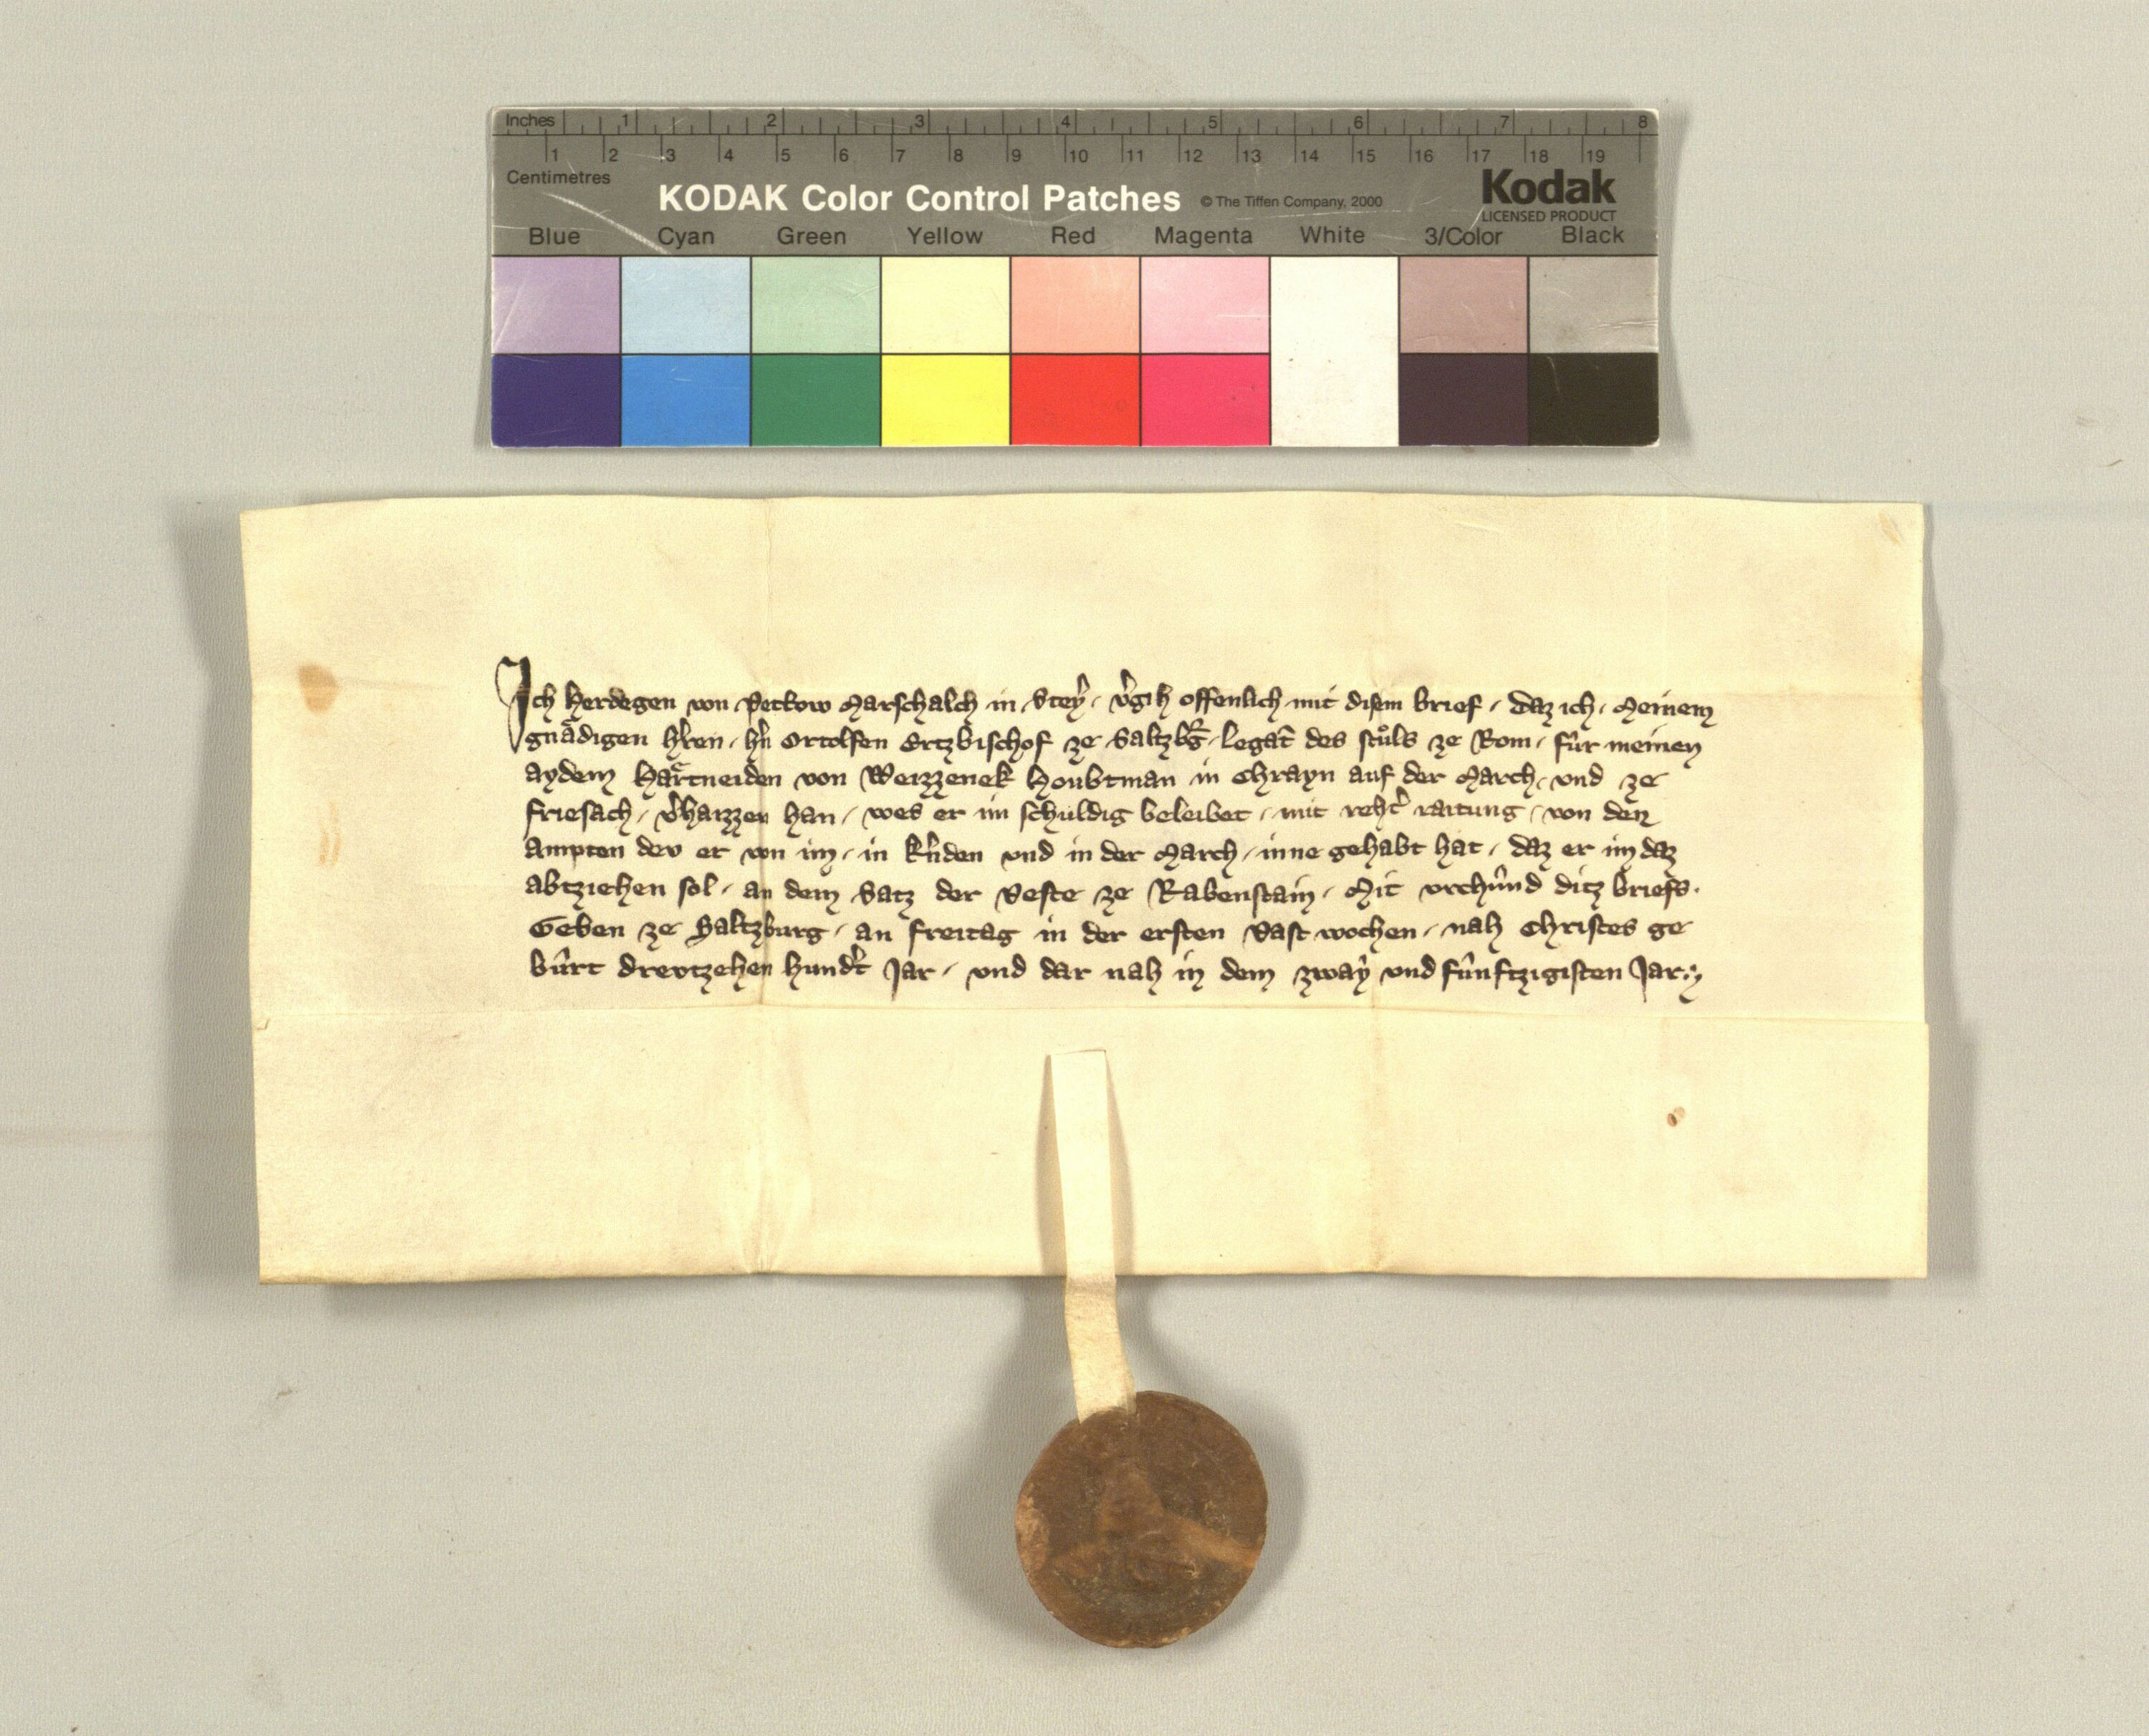 Inches 1 2 3 4 5 6 7 8
1 2 3 4 5 6 7 8 9 10 11 12 13 14 15 16 17 18 19
Centimetres
KODAK Color Control Patches © The Tiffen Company, 2000 Kodak
LICENSED PRODUCT
Blue Cyan Green Yellow Red Magenta White 3/Color Black
Ich Herdegen von Petkow Marschalch in Steyr̂ / v̂gih offenlich mit disem brief / daz ich / meinem
gnaͤdigen hr̂ren / hn̂ Ortolfen Ertzbischof ze Saltzbg̅ / legat̂ des stuͦls ze Rom / fûr meinen
aydem Haͤrtneiden von Weizzenek Houbtman in Chrayn auf der March / vnd ze
Friesach / v̂haizzen han / wes er im schuldig beleibet / mit reht̂ raitung / von den
ampten dev er von im / in kn̂den vnd in der March / inne gehabt hat / daz er im daz
abtziehen sol / an dem Satz der Veste ze Rabenstain / Mit vrchûnd ditz briefs.
Geben ze Saltzburg / an Freitag in der ersten Vast wochen / nah Christes ge
bûrt drevtzehen hundt̂ Jar / vnd dar nah in dem zwaÿ vnd fûnftzigisten Jar